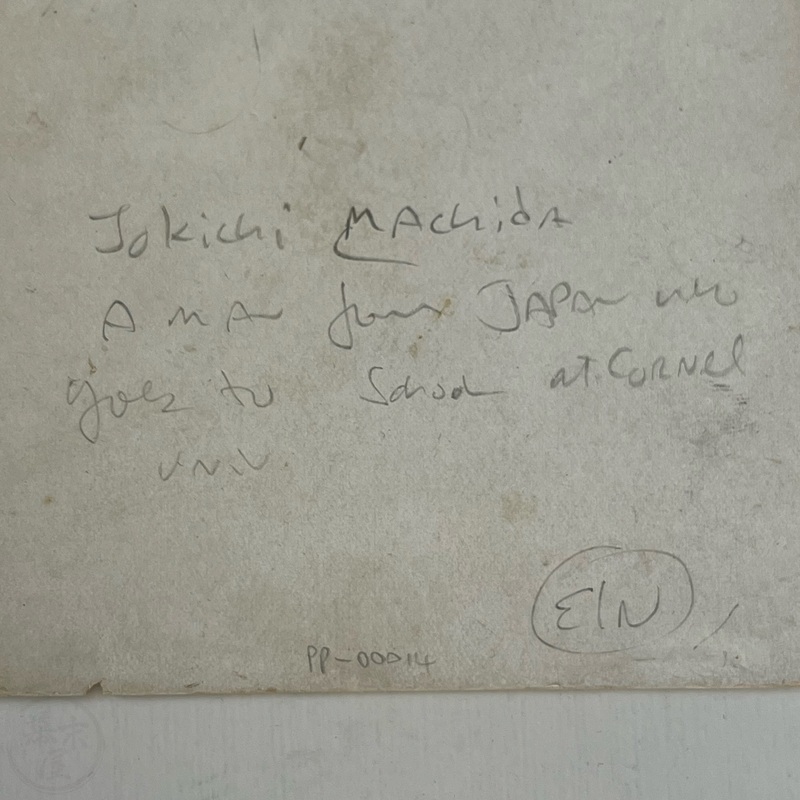 Jokichi MAchidA
A mAn from JAPAn who
goes to School at CORNEl
UNIV.
EIN
PP-00014